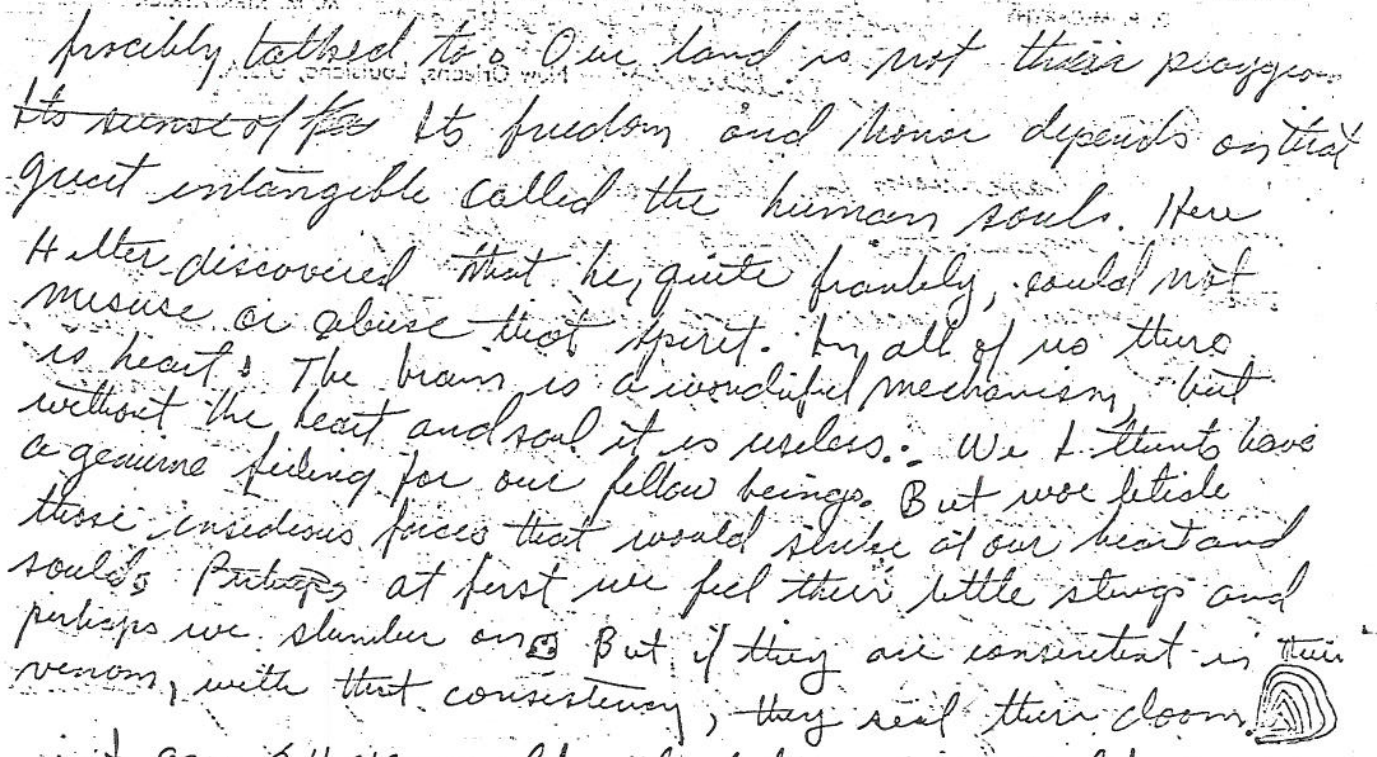 forcibly talked to. Our land is not their playgroun
Its sense of Its freedom and honor depends on that
great intangible called the human souls. Here
Hitler discovered that he, quite frankly, could not
misuse or abuse that spirit. In all of us there
is heart. The brain is a wonderful mechanism, but
without the heart and soul it is useless. We I think have
a genuine feeling for our fellow beings. But woe betide
those insidious forces that would strike at our heart and
souls. Perhaps at first we feel their little stings and
perhaps we slumber on. But if they are consistent in their
venom, with that consistency, they seal their doom.
New Orleans, Louisiana, U.S.A.